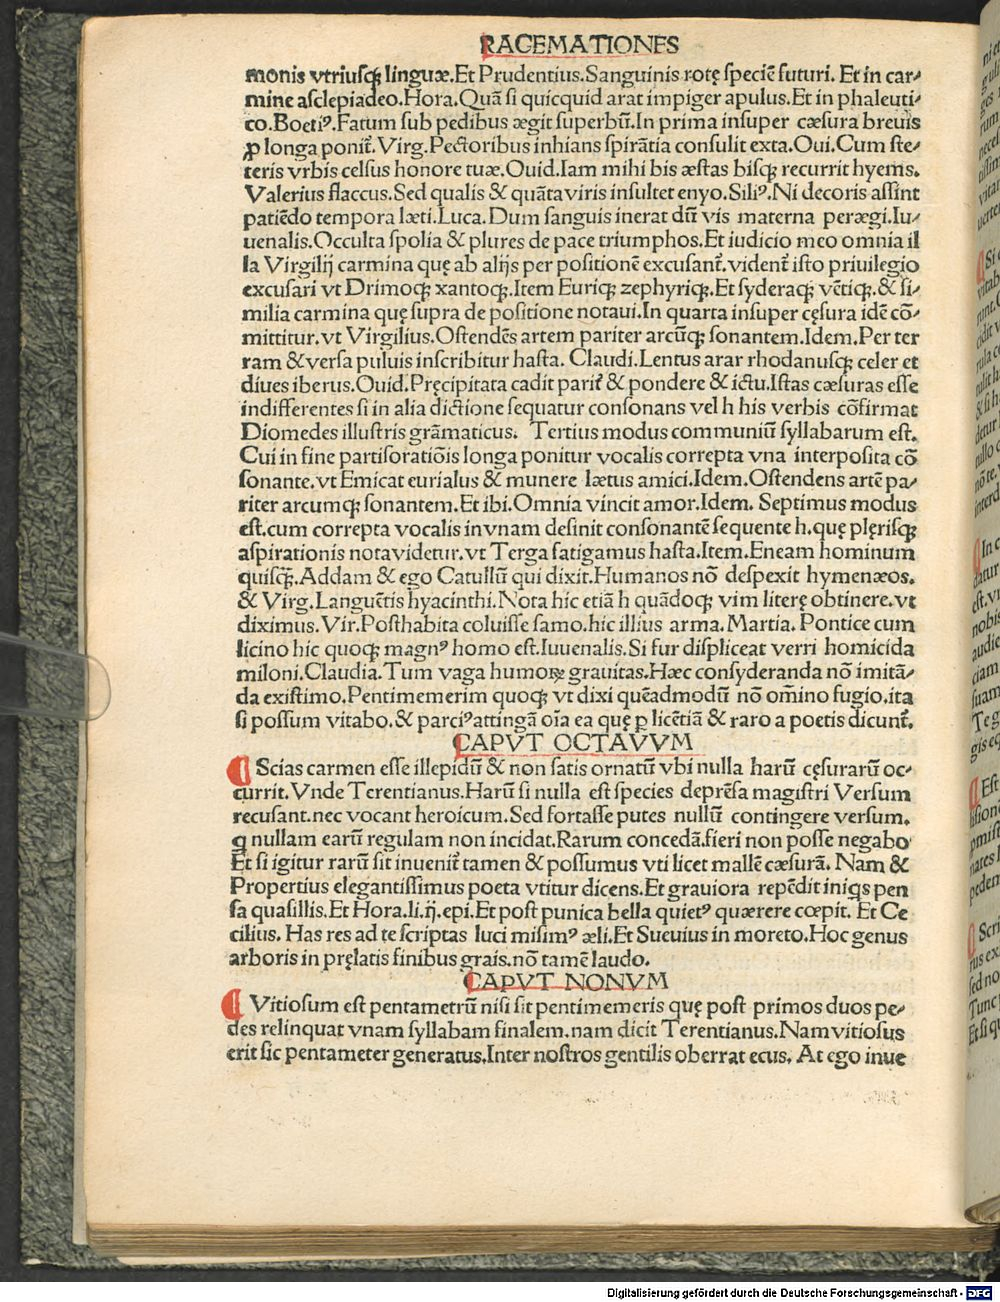 RACEMATIONES
monis vtriusq; linguæ.Et Prudentius.Sanguinis rotę ſpeciē futuri. Et in car⸗
mine aſclepiadeo.Hora.Quā ſi quicquid arat impiger apulus.Et in phaleuti⸗
co.Boetiꝰ.Fatum ſub pedibus ægit ſuperbū.In prima inſuper cæſura breuis
ꝓ longa ponit̄.Virg.Pectoribus inhians ſpirātia conſulit exta.Oui.Cum ſte⸗
teris vrbis celſus honore tuæ.Ouid.Iam mihi bis æſtas biſq; recurrit hyems.
Valerius flaccus.Sed qualis & quāta viris inſultet enyo.Siliꝰ.Ni decoris aſſint
patiēdo tempora læti.Luca.Dum ſanguis inerat dū vis materna peraegi.Iu⸗
uenalis.Occulta ſpolia & plures de pace triumphos.Et iudicio meo omnia il
la Virgilij carmina quę ab alijs per poſitionē excuſant̄.vident̄ iſto priuilegio
excuſari vt Drimoq; xantoq;.Item Euriq; zephyriq;.Et ſyderaq; vētiq;.& ſi⸗
milia carmina quę ſupra de poſitione notaui.In quarta inſuper cęſura idē cō⸗
mittitur.vt Virgilius.Oſtendēs artem pariter arcūq; ſonantem.Idem.Per ter
ram & verſa puluis inſcribitur haſta. Claudi.Lentus arar rhodanuſq; celer et
diues iberus.Ouid.Pręcipitata cadit parit̄ & pondere & ictu.Iſtas cæſuras eſſe
indifferentes ſi in alia dictione ſequatur conſonans vel h his verbis cōfirmat
Diomedes illuſtris grāmaticus. Tertius modus communiū ſyllabarum eſt.
Cui in fine partiſoratiōis longa ponitur vocalis correpta vna interpoſita cō
ſonante.vt Emicat eurialus & munere lætus amici.Idem.Oſtendens artē pa⸗
riter arcumq; ſonantem.Et ibi.Omnia vincit amor.Idem. Septimus modus
eſt.cum correpta vocalis in vnam deſinit conſonantē ſequente h.quę plęriſq;
aſpirationis nota videtur.vt Terga fatigamus haſta.Item.Eneam hominum
quiſq;.Addam & ego Catullū qui dixit.Humanos nō deſpexit hymenæos.
& Virg.Languētis hyacinthi.Nota hic etiā h quādoq; vim literę obtinere.vt
diximus.Vir.Poſthabita coluiſſe ſamo.hic illius arma.Martia.Pontice cum
licino hic quoq; magnꝰ homo eſt.Iuuenalis.Si fur diſpliceat verri homicida
miloni.Claudia.Tum vaga humoꝝ grauitas.Hæc conſyderanda nō imitā⸗
da exiſtimo.Pentimemerim quoq; vt dixi quēadmodū nō om̄ino fugio.ita
ſi poſſum vitabo.& parciꝰ attingā oīa ea quę ꝑ licētiā & raro a poetis dicunt̄.
CAPVT OCTAVVM
¶ Scias carmen eſſe illepidū & non ſatis ornatū vbi nulla harū cęſurarū oc⸗
currit.Vnde Terentianus.Harū ſi nulla eſt ſpecies deprēſa magiſtri Verſum
recuſant.nec vocant heroicum.Sed fortaſſe putes nullū contingere verſum.
ꝗ nullam earū regulam non incidat.Rarum concedā.fieri non poſſe negabo
Et ſi igitur rarū ſit inuenit̄ tamen & poſſumus vti licet mallē cæſurā. Nam &
Propertius elegantiſſimus poeta vtitur dicens.Et grauiora repēdit iniqs pen
ſa quaſillis.Et Hora.li.ij.epi.Et poſt punica bella quietꝰ quærere cœpit. Et Ce
cilius. Has res ad te ſcriptas luci miſimꝰ æli.Et Sueuius in moreto.Hoc genus
arboris in pręlatis finibus grais.nō tamē laudo.
CAPVT NONVM
¶ Vitioſum eſt pentametrū niſi ſit pentimemeris quę poſt primos duos pe⸗
des relinquat vnam ſyllabam finalem.nam dicit Terentianus.Nam vitioſus
erit ſic pentameter generatus.Inter noſtros gentilis oberrat ecus. At ego inue
Digitalisierung gefördert durch die Deutsche Forschungsgemeinschaft - DFG